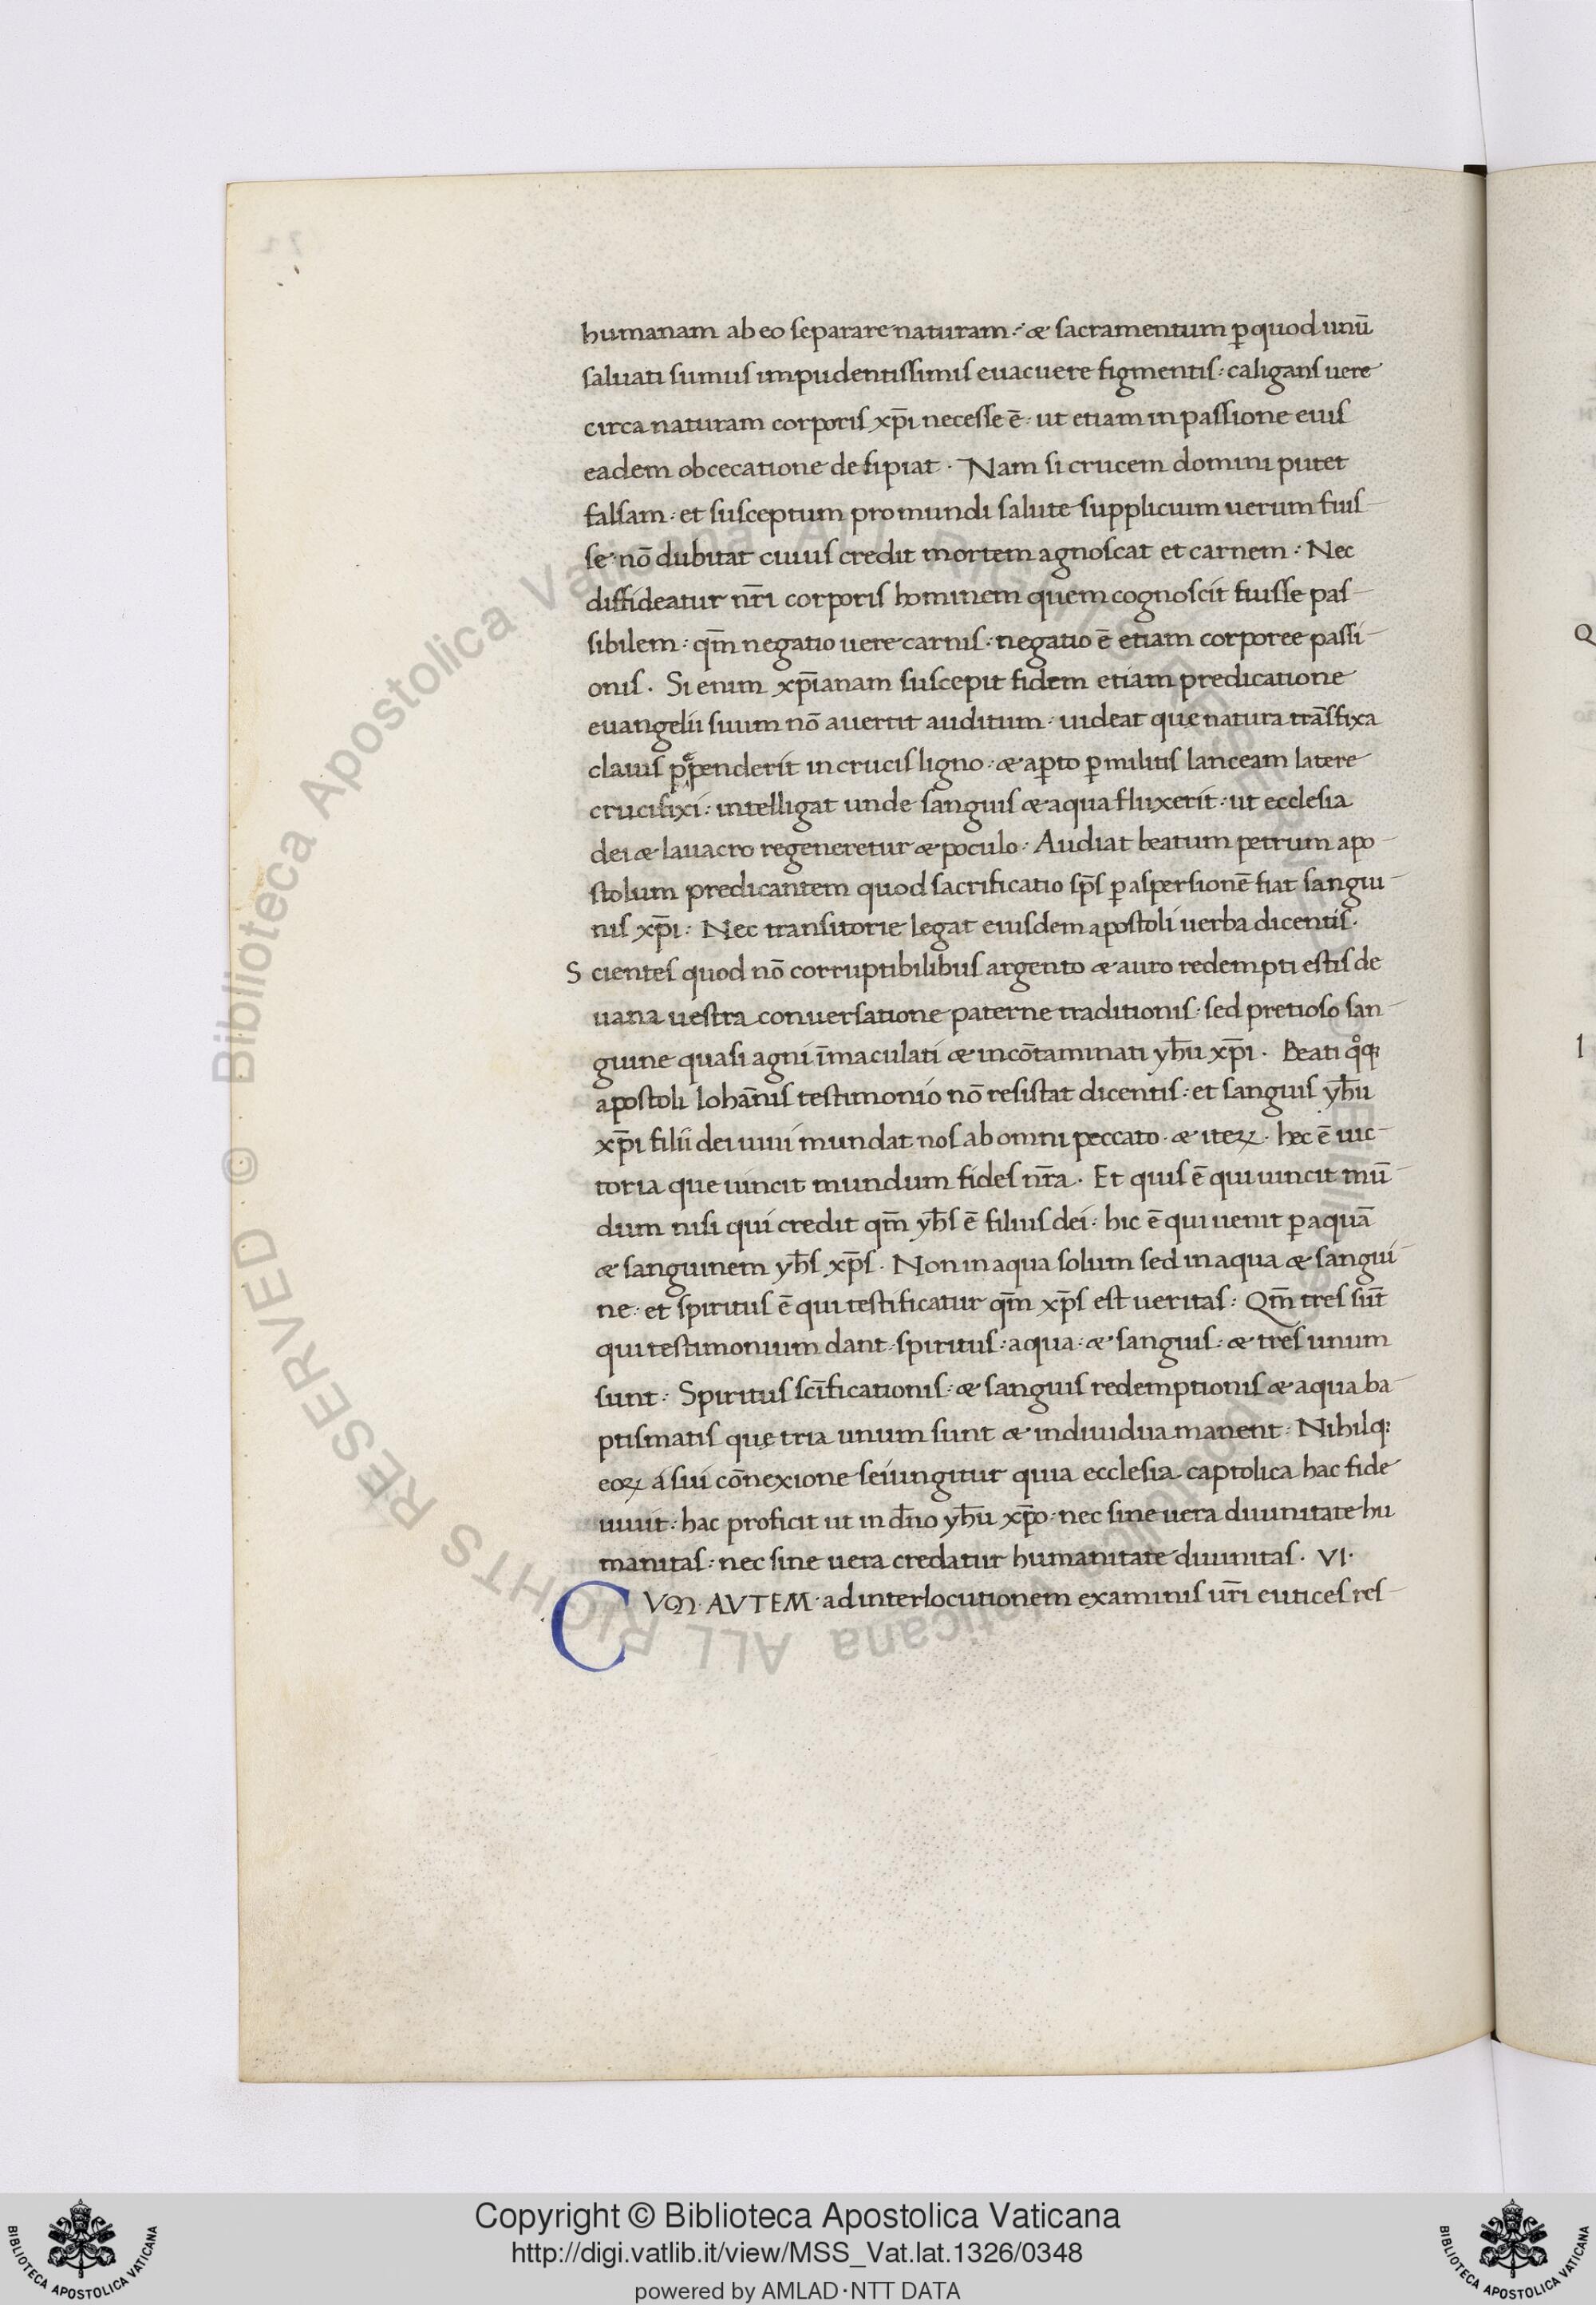 humanam ab eo separare naturam: æ sacramentum ꝑ quod unū
saluati sumus impudentissimis euacuere figmentis: caligans uere
circa naturam corporis xp̄i necesse ē· ut etiam in passione eius
eadem obcecatione desipiat · Nam si crucem domini putet
falsam: et susceptum pro mundi salute supplicium uerum fuis-
se· nō dubitat cuius credit mortem agnoscat et carnem: Nec
diffideatur nr̄i corporis hominem quem cognoscit fuisse pas-
sibilem: qm̄ negatio uere carnis: negatio ē etiam corporee passi-
onis. Si enim xp̄ianam suscepit fidem etiam predicatione
euangelii suum nō auertit auditum: uideat quę natura trāsfixa
clauis ꝑpenderit in crucis ligno: æ aꝑto ꝑ militis lanceam latere
crucifixi: intelligat unde sanguis æ aqua fluxerit: ut ecclesia
dei æ lauacro regeneretur æ poculo: Audiat beatum petrum apo-
stolum predicantem quod sacrificatio sp̄s ꝑ aspersionē fiat sangui-
nis xp̄i: Nec transitorie legat eiusdem apostoli uerba dicentis.
Scientes quod nō corruptibilibus argento æ auro redempti estis de
uana uestra conuersatione paterne traditionis· sed pretioso san-
guine quasi agni īmaculati æ incōtaminati yh̄u xp̄i. Beati qͦq;
apostoli Iohānis testimonio nō resistat dicentis: et sanguis yh̄u
xp̄i filii dei uiui mundat nos ab omni peccato· æ iteꝝ· hec ē uic-
toria que uincit mundum fides nr̄a. Et quis ē qui uincit mū-
dum nisi qui credit qm̄ yh̄s ē filius dei: hic ē qui uenit ꝑ aquā
æ sanguinem yh̄s xp̄s. Non in aqua solum sed in aqua æ sangui-
ne: et spiritus ē qui testificatur qm̄ xp̄s est ueritas: Qm̄ tres sūt
qui testimonium dant: spiritus: aqua: æ sanguis: æ tres unum
sunt: Spiritus scīficationis: æ sanguis redemptionis æ aqua ba-
ptismatis quę tria unum sunt æ indiuidua manent: Nihilq;
eoꝝ a sui cōnexione seiungitur quia ecclesia captolica hac fide
uiuit: hac proficit ut in dn̄o yh̄u xp̄o: nec sine uera diuinitate hu
manitas: nec sine uera credatur humanitate diuinitas. VI.
CVM· AVTEM· ad interlocutionem examinis ur̄i eutices res-
Copyright © Biblioteca Apostolica Vaticana
http://digi.vatlib.it/view/MSS_Vat.lat.1326/0348
powered by AMLAD·NTT DATA
BIBLIOTECA APOSTOLICA VATICANA
BIBLIOTECA APOSTOLICA VATICANA
© Biblioteca Apostolica Vaticana ALL RIGHTS RESERVED